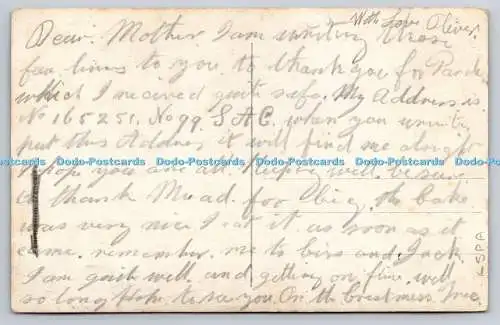 With Love Oliver.
Dear. Mother. I am writing these
few lines to you to thank you for Parcle
which I recived quite safe. My Address is
No 165251. No 99. S A C. when you write
put this Address it will find me alright
I hope you are all Keeping well. be sure
to thank Mead. for the cake
was very nice I eat it as soon as it
came. remember me to and Jack
I am quite well and getting on fine. well
so long Hope to see you. On the
Dodo-Postcards Dodo-Postcards Dodo-Postcards Dodo-Postcards Dodo-Postcards